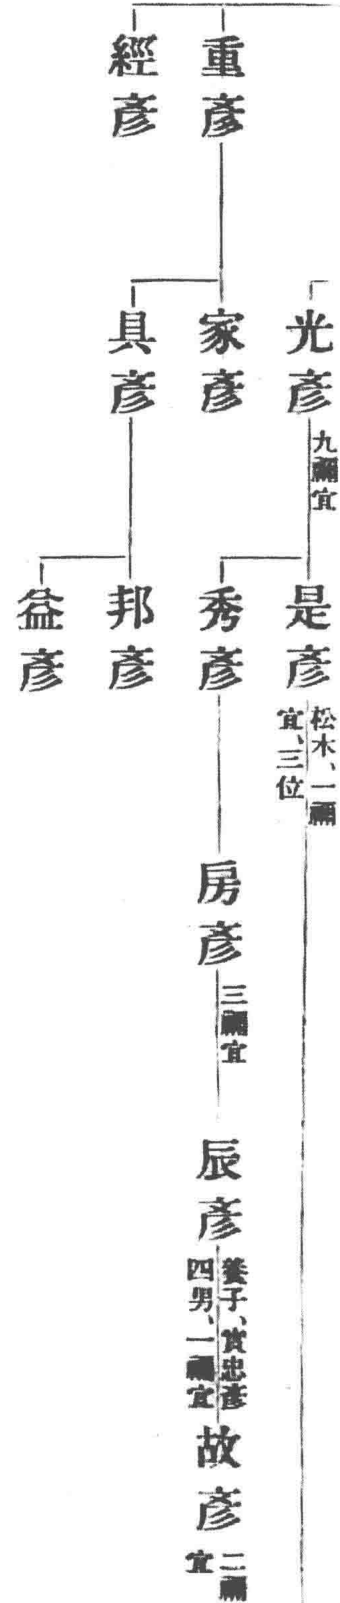 重彥
經彥
光彥
九禰宜
家彥
具彥
是彥
松木、一禰
宜、三位
秀彥
邦彥
益彥
房彥
三禰宜
辰彥
養子、實忠彥
四男、一禰宜
故彥
二禰
宜